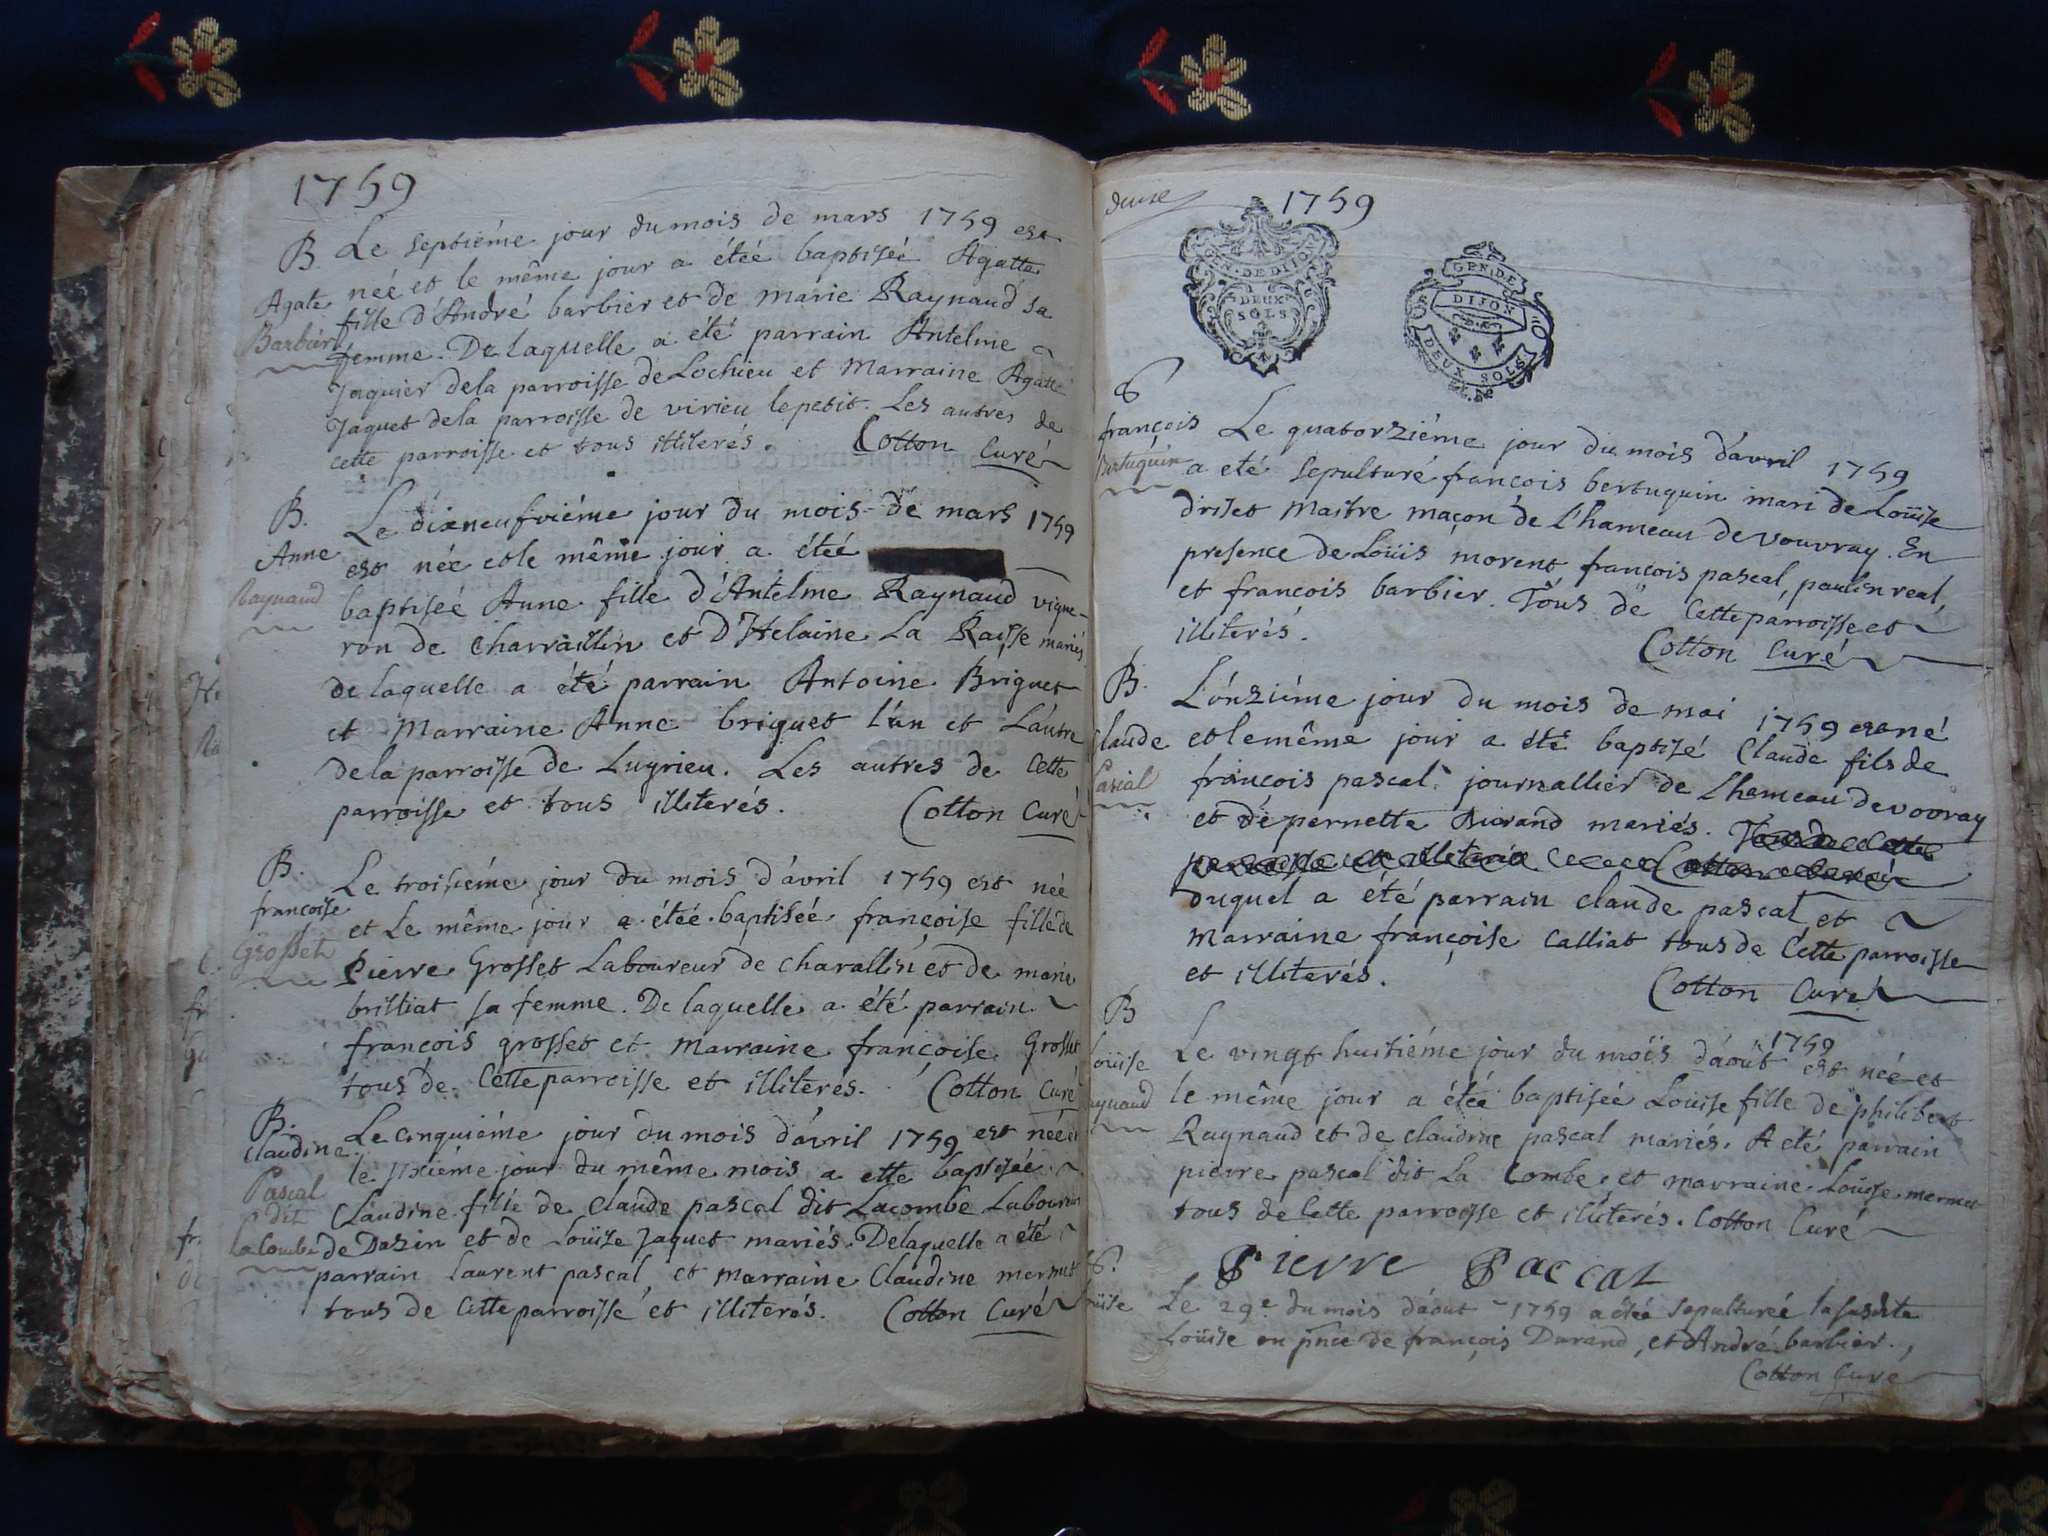 1759
B. Le septiéme jour du mois de mars 1759 est
née et le même jour a étéé baptiséé Agatte
Agate
Barbier
fille d'André barbier et de marie Raynaud sa
femme. De laquelle a été parrain Antelme
Jaquier dela parroisse de Lochieu et Marraine Agatte
Jaquet dela parroisse de virieu lepetit. Les autres de
cette parroisse et tous illiterés. Cotton Curé
B.
Anne
Raynaud
Le dixneufviéme jour du mois de mars 1759
est née et le même jour a étéé
baptiséé Anne fille d'Antelme Raynaud vigne-
ron de Charraillin et D'Helaine La Raisse mariés
de laquelle a été parrain Antoine Briguet
et Marraine Anne briguet l'un et L'autre
dela parroisse de Luyrieu. Les autres de Cette
parroisse et tous illiterés. Cotton Curé
B.
françoise
Grosset
Le troisiéme jour du mois d'avril 1759 est née
et Le même jour a étéé baptiséé françoise fille de
Pierre Grosset Laboureur de charallin et de marie
brilliat sa femme. De laquelle a été parrain
françois grosset et marraine françoise Grosset
tous de Cette parroisse et illiterés. Cotton Curé
B.
Claudine
Pascal
dit
La Combe
Le cinquiéme jour du mois d'avril 1759 est née et
le sixiéme jour du même mois a etté baptiséé
Claudine fille de Claude pascal dit Lacombe Laboureur
de Dazin et de Loüise Jaquet mariés. Delaquelle a été
parrain Laurent pascal et marraine Claudine mermet
tous de Cette parroisse et illiterés. Cotton Curé
1759
GEN. DE DIJON
DEUX
SOLS
GEN. DE
DIJON
DEUX SOLS
S
françois
Bertuguin
Le quatorziéme jour du mois d'avril 1759
a eté sepulturé françois bertuguin mari de Loüise
driset Maitre maçon de L'hameau de vouvray. En
presence de Loüis morent françois pascal, paulin real,
et françois barbier. Tous de Cette parroisse et
illiterés.
Cotton Curé
B.
Claude
Pascal
L'onziéme jour du mois de mai 1759 est né
et le même jour a été baptizé Claude fils de
françois pascal journallier de L'hameau de voovray
et de pernette Durand mariés. Tous de Cette
parroisse et illiterés Cotton Curé
duquel a été parrain claude pascal et
marraine françoise Calliat tous de Cette parroisse
et illiterés.
Cotton Curé
B
Loüise
Raynaud
Le vingt huitiéme jour du moïs d'août 1759 est née et
le même jour a étéé baptiséé Loüise fille de philibert
Raynaud et de claudine pascal mariés. A eté parrain
pierre pascal dit La Combe, et marraine Loüise mermet
tous de Cette parroisse et illiterés. Cotton Curé
Pierre Paccat
S.
Loüise
Le 29e du mois d'aout 1759 a étéé sepulturéé la susdite
Loüise en pnce de françois Durand, et André barbier.
Cotton Curé